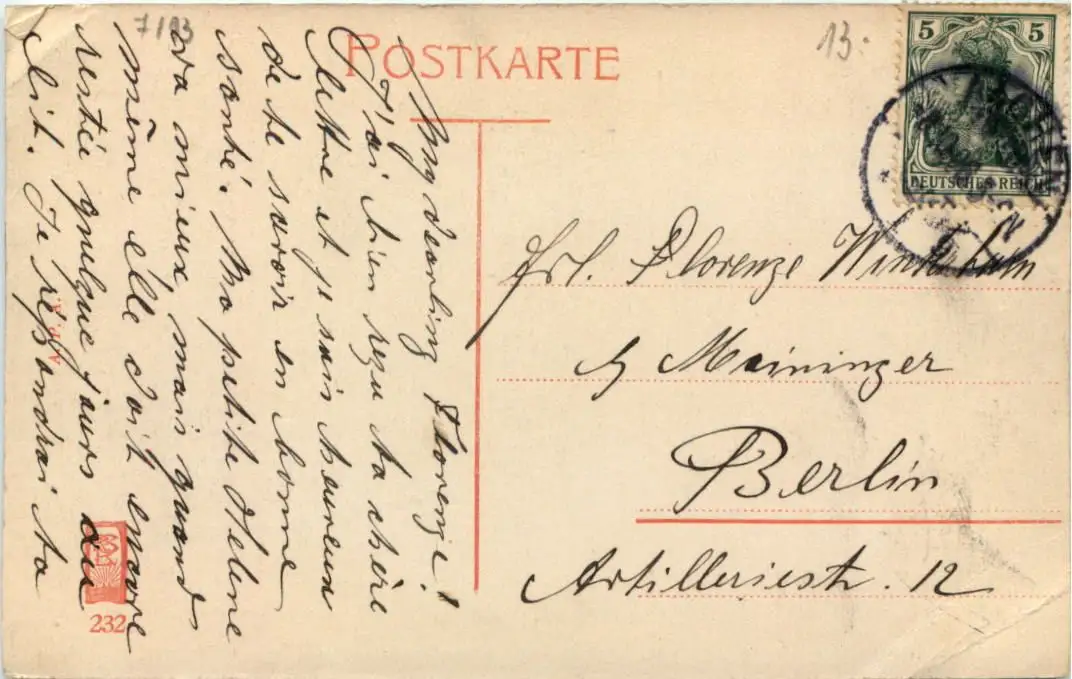 7193
13.
POSTKARTE
5 5
DEUTSCHES REICH
AACHEN
Frl. Florenze
b/ Meininger
Berlin
Artilleriestr. 12
My dearling Florenze!
J'ai bien reçu ta chère
lettre et je suis heureux
de te savoir en bonne
santé. Ma petite Helene
va mieux mais quand
même elle doit encore
restée quelque jours au
lit. Je répondrai ta
232